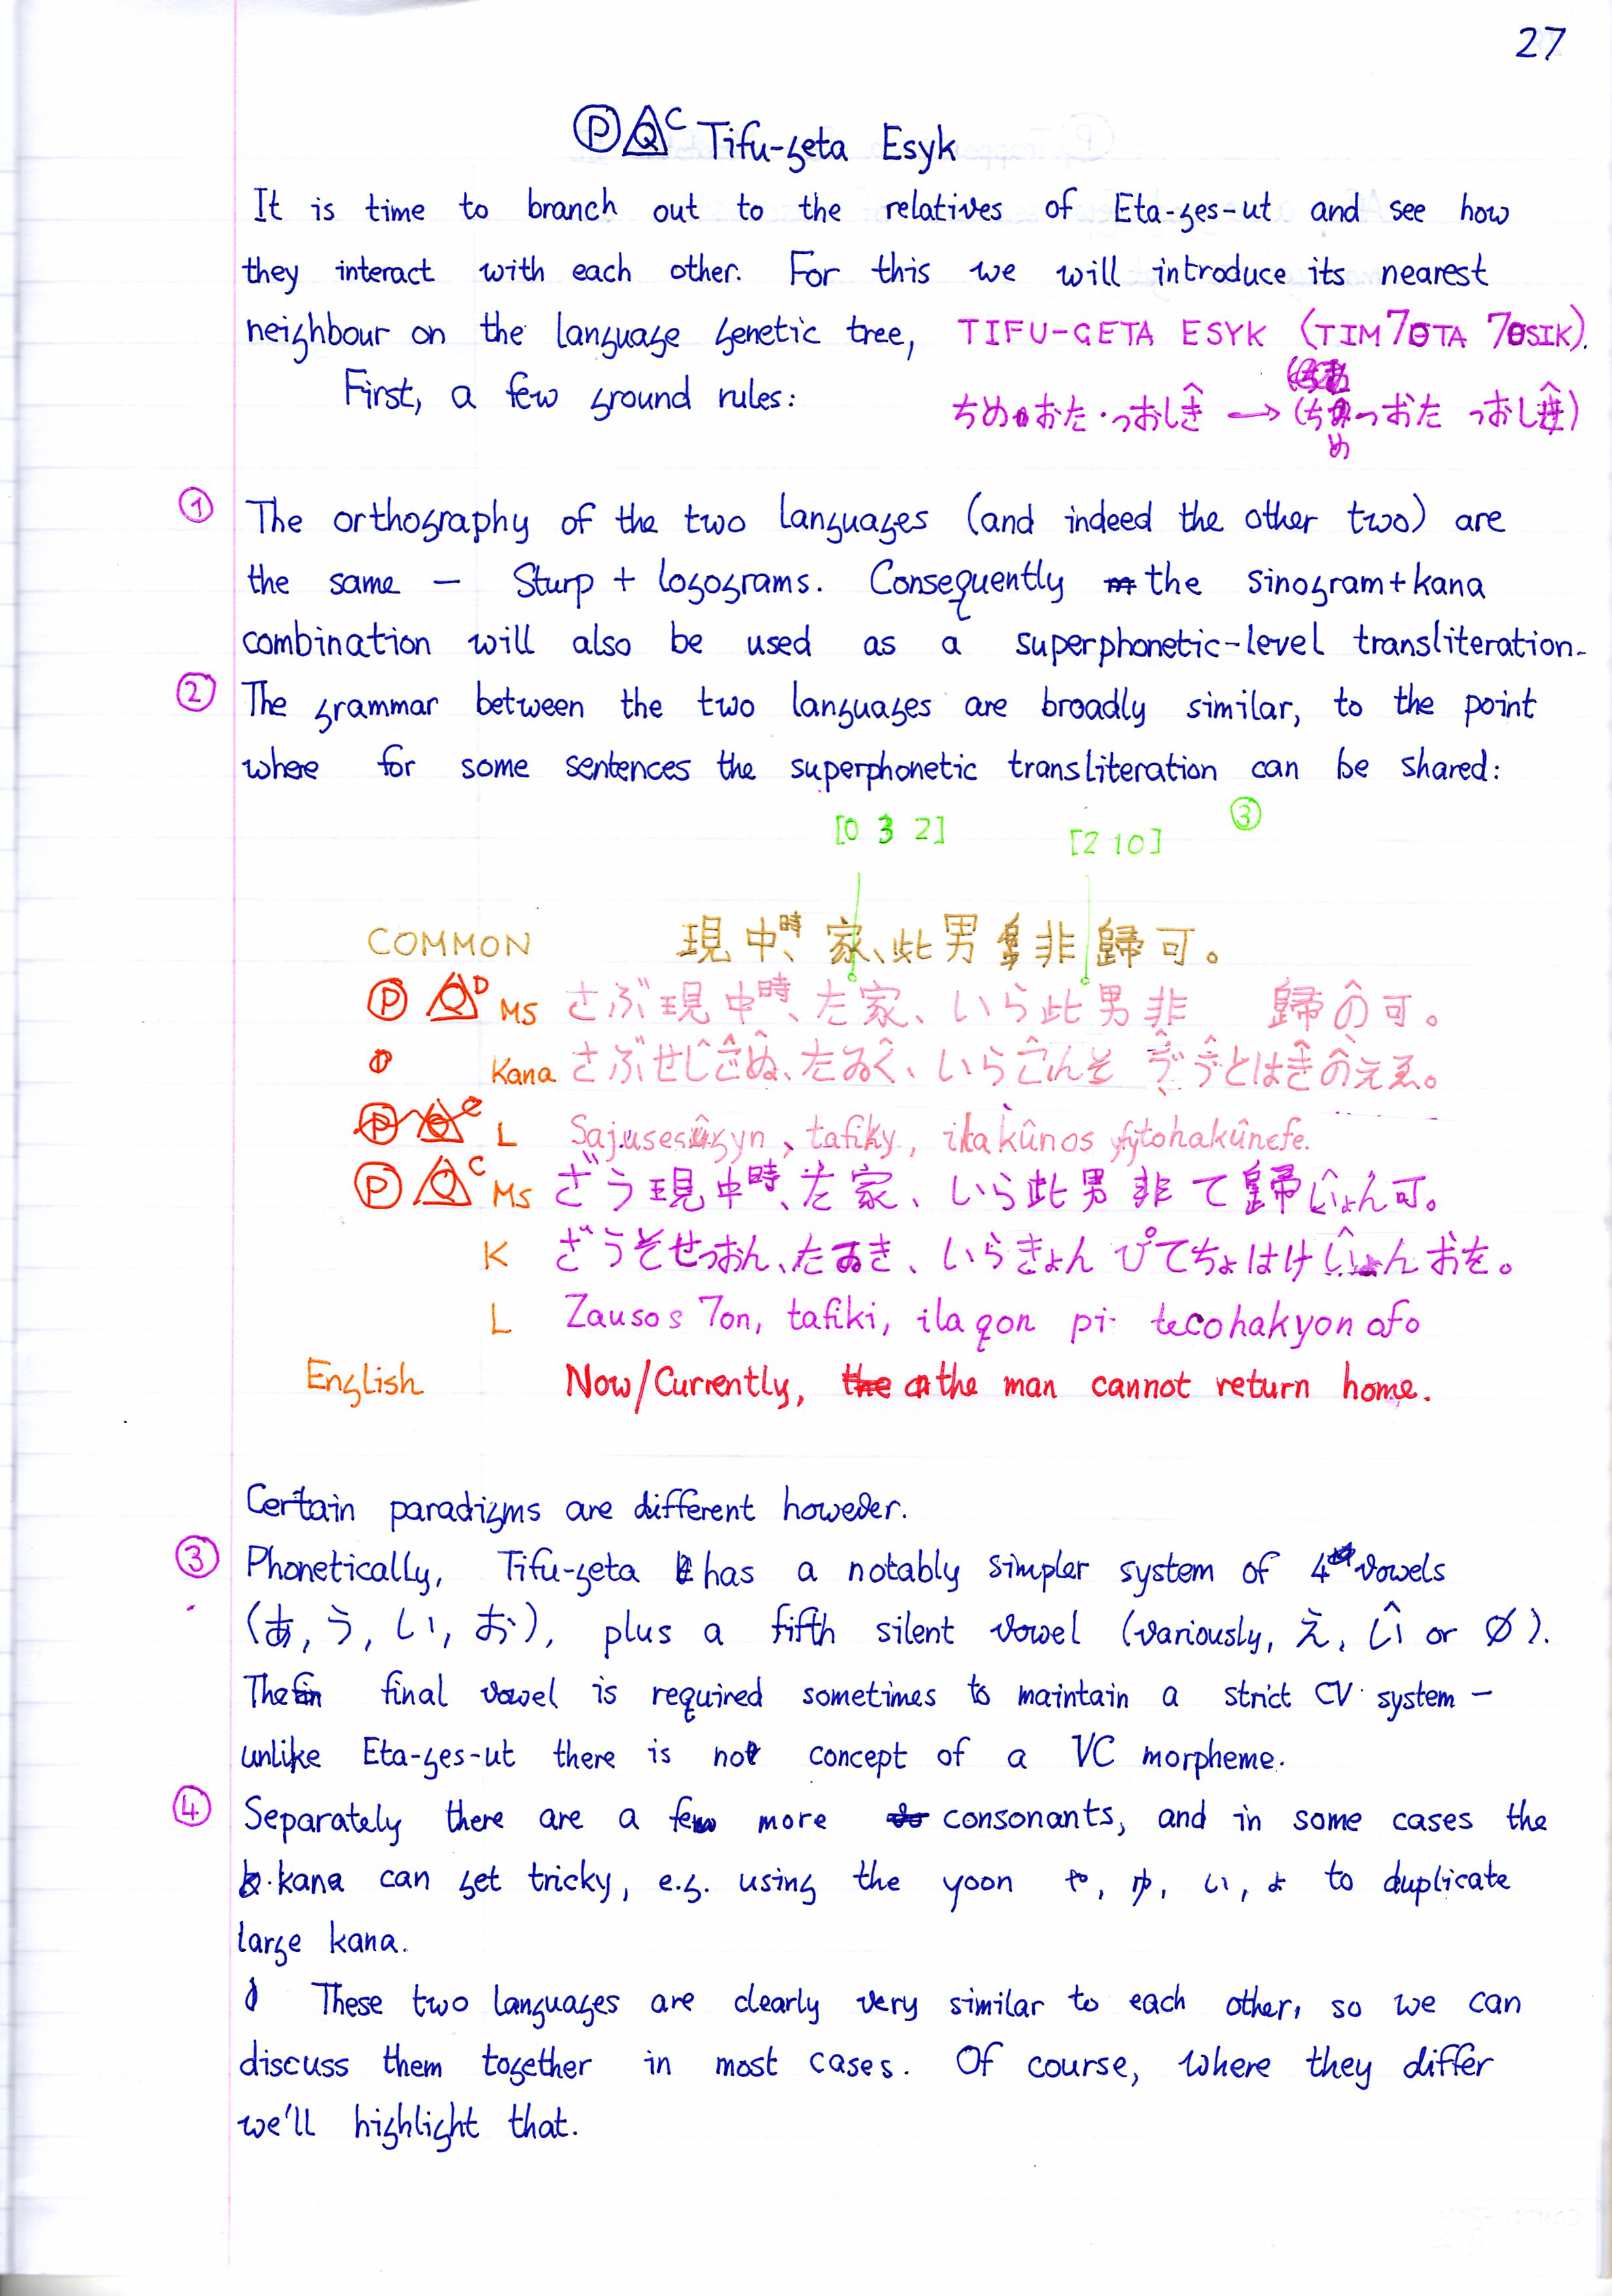 27
Ⓟ Q C Tifu-geta Esyk
It is time to branch out to the relatives of Eta-ges-ut and see how
they interact with each other. For this we will introduce its nearest
neighbour on the language genetic tree, TIFU-GETA ESYK (TIM7OTA 7OSIK).
First, a few ground rules: ちめおた・っおしき → (ちめっおた っおしき)
① The orthography of the two languages (and indeed the other two) are
the same – Sturp + logograms. Consequently the sinogram+kana
combination will also be used as a superphonetic-level transliteration.
② The grammar between the two languages are broadly similar, to the point
where for some sentences the superphonetic transliteration can be shared:
[0 3 2] [2 10] ③
COMMON 現中時、家、此男非歸可。
Ⓟ Q D MS さぶ現中時、た家、いら此男非 歸の可。
Kana さぶせじ た ゐく、いら
L tafiky,
Ⓟ Q C MS ざう現中時、た家、いら此男非て歸じょん可。
K ざうそせっおん、たゐき、いらきょん ぴてちょはけじょんおを。
L Zausos 7on, tafiki, ila qon pi tecohakyon ofo
English Now/Currently, the man cannot return home.
Certain paradigms are different however.
③ Phonetically, Tifu-geta has a notably simpler system of 4 vowels
(あ, う, い, お), plus a fifth silent vowel (variously, え, じ or ∅).
The final vowel is required sometimes to maintain a strict CV system –
unlike Eta-ges-ut there is not concept of a VC morpheme.
④ Separately there are a few more consonants, and in some cases the
kana can get tricky, e.g. using the yoon ゃ, ゅ, ぃ, ょ to duplicate
large kana.
These two languages are clearly very similar to each other, so we can
discuss them together in most cases. Of course, where they differ
we'll highlight that.